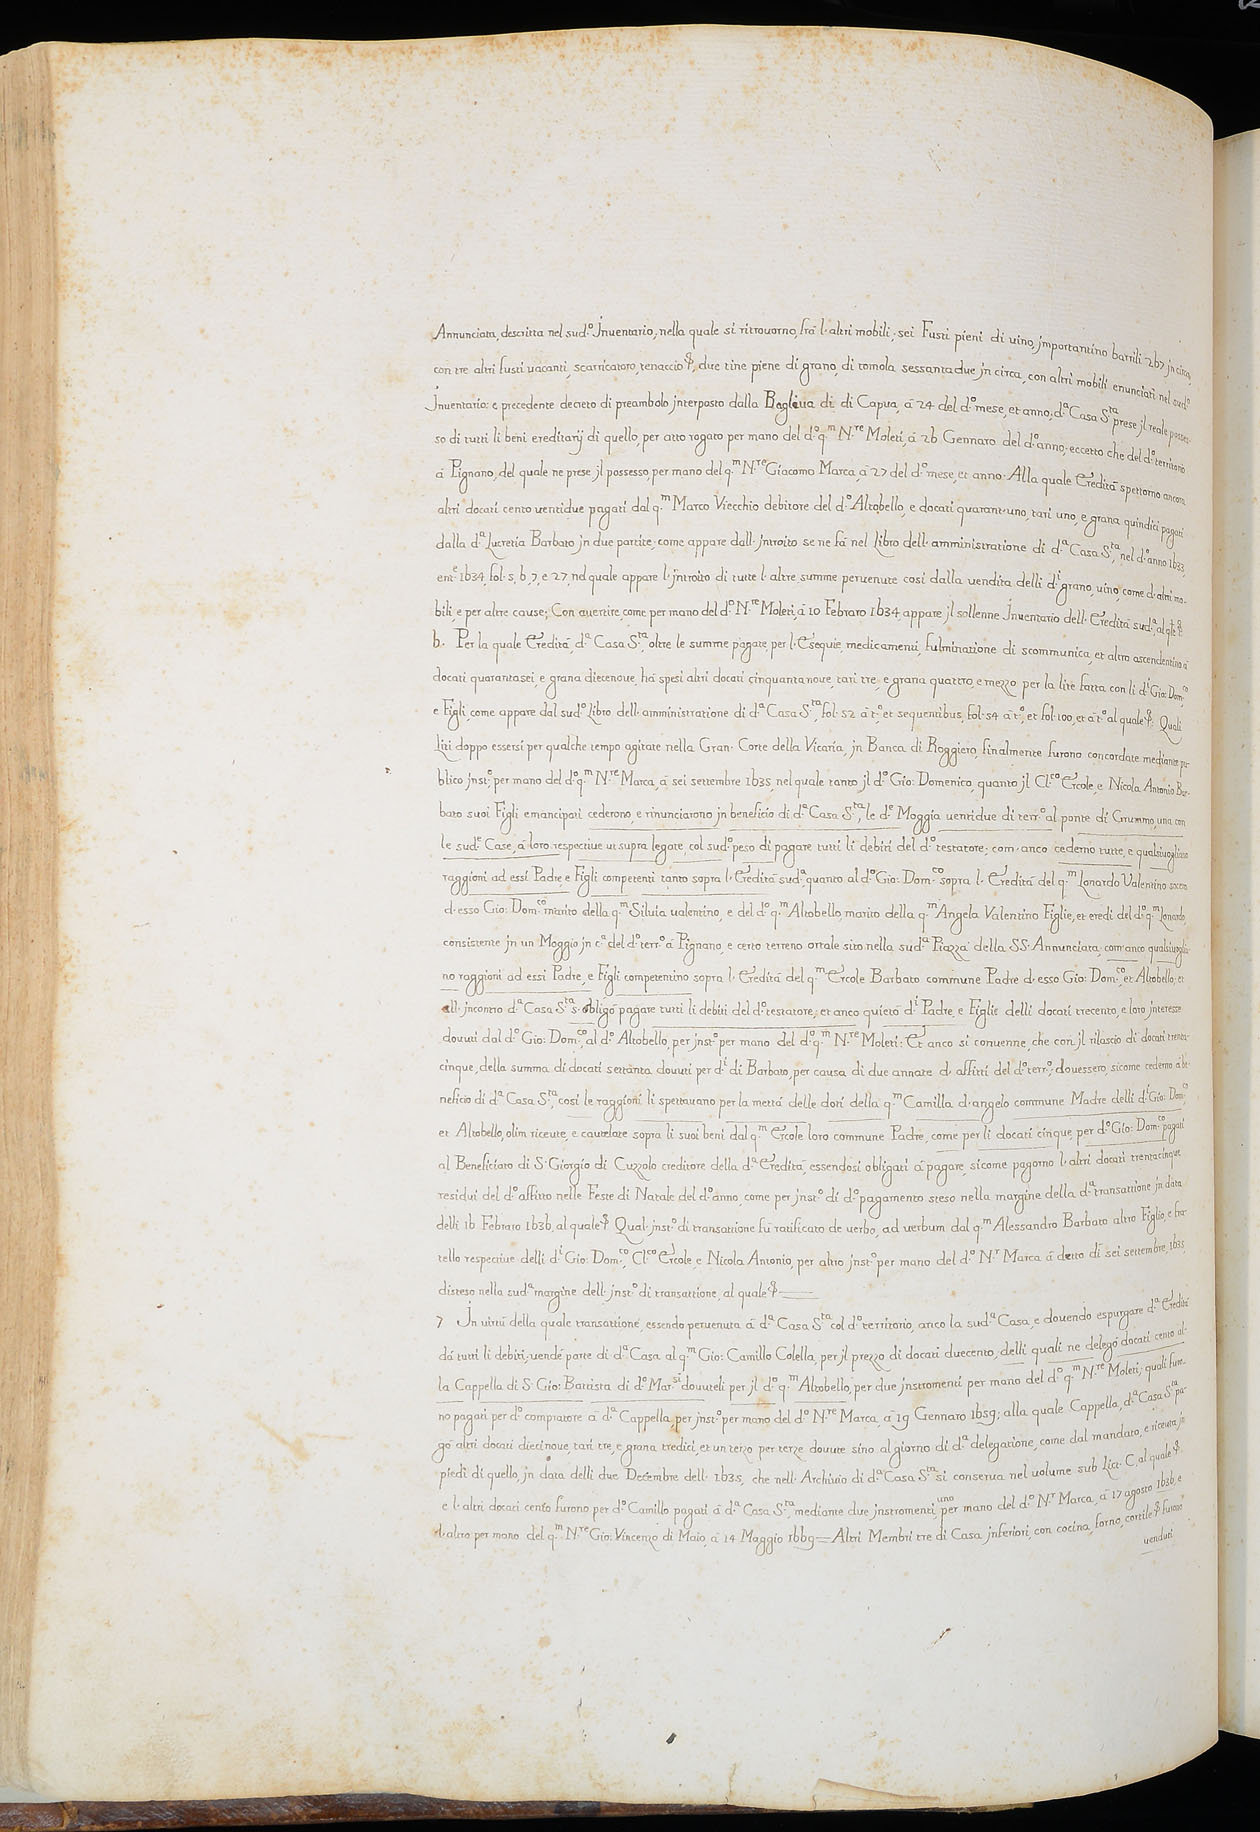 Annunciata, descritta nel sud.º Jnuentario, nella quale si ritrouorno, frà l'altri mobili, sei Fusti pieni di uino, jmportantino barrili 267 jn circa,
con tre altri fusti uacanti, scarricatoro, tenaccio &, due tine piene di grano, di tomola sessantadue jn circa, con altri mobili enunciati nel sud.º
Jnuentario: e precedente decreto di preambolo jnterposto dalla Bagliua di di Capua, à 24 del d.º mese, et anno, d.ª Casa S.ta prese jl reale posses-
so di tutti li beni ereditarij di quello, per atto rogato per mano del d.º q.m N.re Moleti, à 26 Gennaro del d.º anno, eccetto che del d.º territorio
à Pignano, del quale ne prese jl possesso, per mano del q.m N.re Giacomo Marca, à 27 del d.º mese, et anno. Alla quale Eredità spettorno ancora
altri docati cento uentidue pagati dal q.m Marco Viecchio debitore del d.º Altobello, e docati quarant'uno, tarì uno, e grana quindici pagati
dalla d.ª Lucretia Barbato jn due partite, come appare dall'jntroito se ne fà nel Libro dell'amministratione di d.ª Casa S.ta, nel d.º anno 1633,
ent.e 1634, fol. 5, 6, 7, e 27, nel quale appare l'jntroito di tutte l'altre summe peruenute così dalla uendita delli d.i grano, uino, come d'altri mo-
bili, e per altre cause; Con auertire, come per mano del d.º N.re Moleti, à 10 Febraro 1634 appare jl sollenne Jnuentario dell'Eredità sud.ª, al q.le &.
6. Per la quale Eredità, d.ª Casa S.ta, oltre le summe pagate, per l'Esequie, medicamenti, fulminatione di scommunica, et altro ascendentino à
docati quarantasei, e grana diecenoue, hà spesi altri docati cinquantanoue, tarì tre, e grana quattro, e mezzo per la lite fatta con li d.i Gio: Dom.co
e Figli, come appare dal sud.º Libro dell'amministratione di d.ª Casa S.ta, fol. 52 à t.º, et sequentibus, fol. 54 à t.º, et fol. 100, et à t.º al quale &. Quali
Liti doppo essersi per qualche tempo agitate nella Gran Corte della Vicaria, jn Banca di Roggiero, finalmente furono concordate mediante pu-
blico jnst.º, per mano del d.º q.m N.re Marca, à sei settembre 1635, nel quale tanto jl d.º Gio: Domenico, quanto jl Cl.co Ercole, e Nicola Antonio Bar-
bato suoi Figli emancipati cederono, e rinunciarono jn beneficio di d.ª Casa S.ta, le d.e Moggia uentidue di terr.º al ponte di Grummo, una con
le sud.e Case, à loro respectiue ut supra legate, col sud.º peso di pagare tutti li debiti del d.º testatore; com'anco cederno tutte, e qualsiuogliano
raggioni ad essi Padre, e Figli competenti tanto sopra l'Eredità sud.ª, quanto al d.º Gio: Dom.co sopra l'Eredità del q.m Lonardo Valentino socero
d'esso Gio: Dom.co marito della q.m Siluia ualentino, e del d.º q.m Altobello marito della q.m Angela Valentino Figlie, et eredi del d.º q.m Lonardo,
consistente jn un Moggio jn c.ª del d.º terr.º à Pignano, e certo terreno ortale sito nella sud.ª Piazza della SS. Annunciata, com'anco qualsiuoglia-
no raggioni ad essi Padre, e Figli competentino sopra l'Eredità del q.m Ercole Barbato commune Padre d'esso Gio: Dom.co, et Altobello, et
all'jncontro d.ª Casa S.ta s'obligò pagare tutti li debiti del d.º testatore, et anco quietò d.i Padre, e Figlie delli docati trecento, e loro jnteresse
douuti dal d.º Gio: Dom.co, al d.º Altobello, per jnst.º per mano del d.º q.m N.re Moleti: Et anco si conuenne, che con jl rilascio di docati trenta-
cinque, della summa di docati settanta douuti per d.i di Barbato, per causa di due annate d'affitti del d.º terr.º, douessero, sicome cederno à be-
neficio di d.ª Casa S.ta, così le raggioni li spettauano per la mettà delle doti della q.m Camilla d'angelo commune Madre delli d.i Gio: Dom.co,
et Altobello, olim riceute, e cautelate sopra li suoi beni dal q.m Ercole loro commune Padre, come per li docati cinque, per d.º Gio: Dom.co pagati
al Beneficiato di S. Giorgio di Cuzzolo creditore della d.ª Eredità, essendosi obligati à pagare, sicome pagorno l'altri docati trentacinque
residui del d.º affitto nelle Feste di Natale del d.º anno, come per jnst.º di d.º pagamento steso nella margine della d.ª transattione jn data
delli 16 Febraro 1636, al quale &. Qual jnst.º di transattione fù ratificato de uerbo, ad uerbum dal q.m Alessandro Barbato altro Figlio, e fra-
tello respectiue delli d.i Gio: Dom.co, Cl.co Ercole, e Nicola Antonio, per altro jnst.º per mano del d.º N.r Marca à detto dì sei settembre, 1635,
disteso nella sud.ª margine dell'jnst.º di transattione, al quale &.
7 Jn uirtù della quale transattione, essendo peruenuta à d.ª Casa S.ta col d.º territorio, anco la sud.ª Casa, e douendo espurgare d.ª Eredità
dà tutti li debiti, uendé parte di d.ª Casa al q.m Gio: Camillo Colella, per jl prezzo di docati duecento, delli quali ne delegò docati cento al-
la Cappella di S. Gio: Battista di d.º Mar.si douuteli per jl d.º q.m Altobello, per due jnstromenti per mano del d.º q.m N.re Moleti; quali furo-
no pagati per d.º compratore à d.ª Cappella, per jnst.º per mano del d.º N.re Marca, à 19 Gennaro 1659; alla quale Cappella, d.ª Casa S.ta pa-
gò altri docati diecinoue, tarì tre, e grana tredici, et un terzo per terze douute sino al giorno di d.ª delegatione, come dal mandato, e riceuta jn
piedi di quello, jn data delli due Decembre dell'1635, che nell'Archiuio di d.ª Casa S.ta si conserua nel uolume sub Litt. C, al quale &.
e l'altri docati cento furono per d.º Camillo pagati à d.ª Casa S.ta, mediante due jnstromenti, uno per mano del d.º N.r Marca, à 17 agosto 1636, e
l'altro per mano del q.m N.re Gio: Vincenzo di Maio, à 14 Maggio 1669 = Altri Membri tre di Casa jnferiori, con cocina, forno, cortile & furono
uenduti